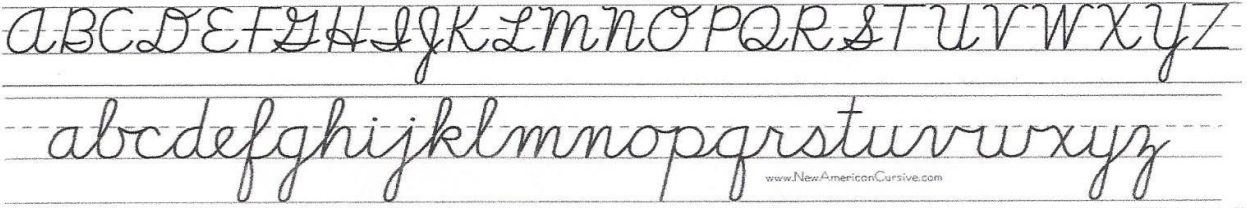 A B C D E F G H I J K L M N O P Q R S T U V W X Y Z
abcdefghijklmnopqrstuvwxyz
www.NewAmericanCursive.com